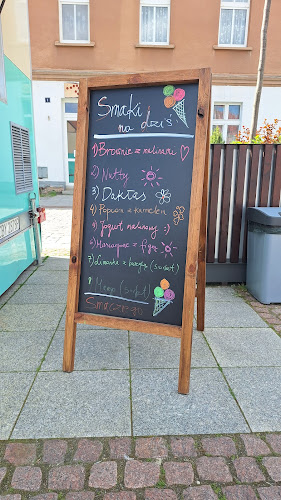 Smaki
na dziś
1) Brownie z malinami
2) Nutty
3) Daktas
4) Popcorn z karmelem
5) Jogurt malinowy :)
6) Mascarpone z figą
7) Limonka z bazylią (sorbet)
8) Mango (sorbet)
Smacznego